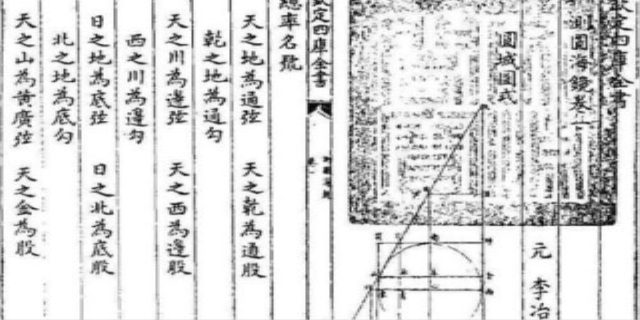 欽定四庫全書
測圓海鏡卷一
元 李冶
圓城圖式
欽定四庫全書
總率名號
天之地為通弦 天之乾為通股
乾之地為通勾
天之川為邊弦 天之西為邊股
西之川為邊勾
日之地為底弦 日之北為底股
北之地為底勾
天之山為黃廣弦 天之金為股